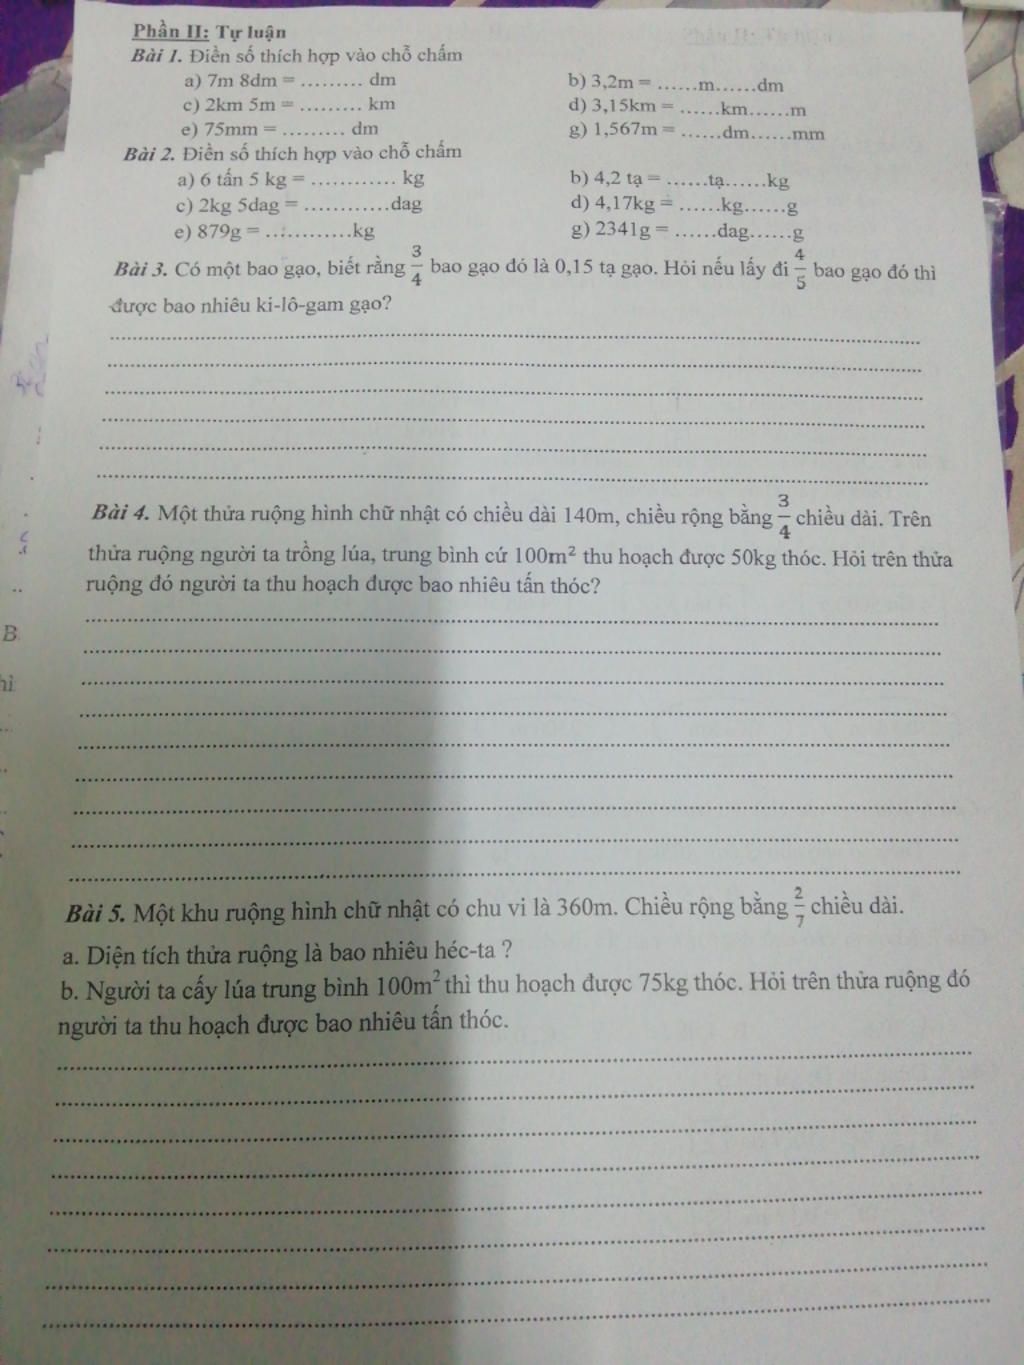 Phần II: Tự luận
Bài 1. Điền số thích hợp vào chỗ chấm
a) 7m 8dm = ......... dm b) 3,2m = ......m......dm
c) 2km 5m = ......... km d) 3,15km = ......km......m
e) 75mm = ......... dm g) 1,567m = ......dm......mm
Bài 2. Điền số thích hợp vào chỗ chấm
a) 6 tấn 5 kg = ............ kg b) 4,2 tạ = ......tạ......kg
c) 2kg 5dag = ............dag d) 4,17kg = ......kg......g
e) 879g = ............kg g) 2341g = ......dag......g
Bài 3. Có một bao gạo, biết rằng 3/4 bao gạo đó là 0,15 tạ gạo. Hỏi nếu lấy đi 4/5 bao gạo đó thì
được bao nhiêu ki-lô-gam gạo?
Bài 4. Một thửa ruộng hình chữ nhật có chiều dài 140m, chiều rộng bằng 3/4 chiều dài. Trên
thửa ruộng người ta trồng lúa, trung bình cứ 100m² thu hoạch được 50kg thóc. Hỏi trên thửa
ruộng đó người ta thu hoạch được bao nhiêu tấn thóc?
Bài 5. Một khu ruộng hình chữ nhật có chu vi là 360m. Chiều rộng bằng 2/7 chiều dài.
a. Diện tích thửa ruộng là bao nhiêu héc-ta ?
b. Người ta cấy lúa trung bình 100m² thì thu hoạch được 75kg thóc. Hỏi trên thửa ruộng đó
người ta thu hoạch được bao nhiêu tấn thóc.